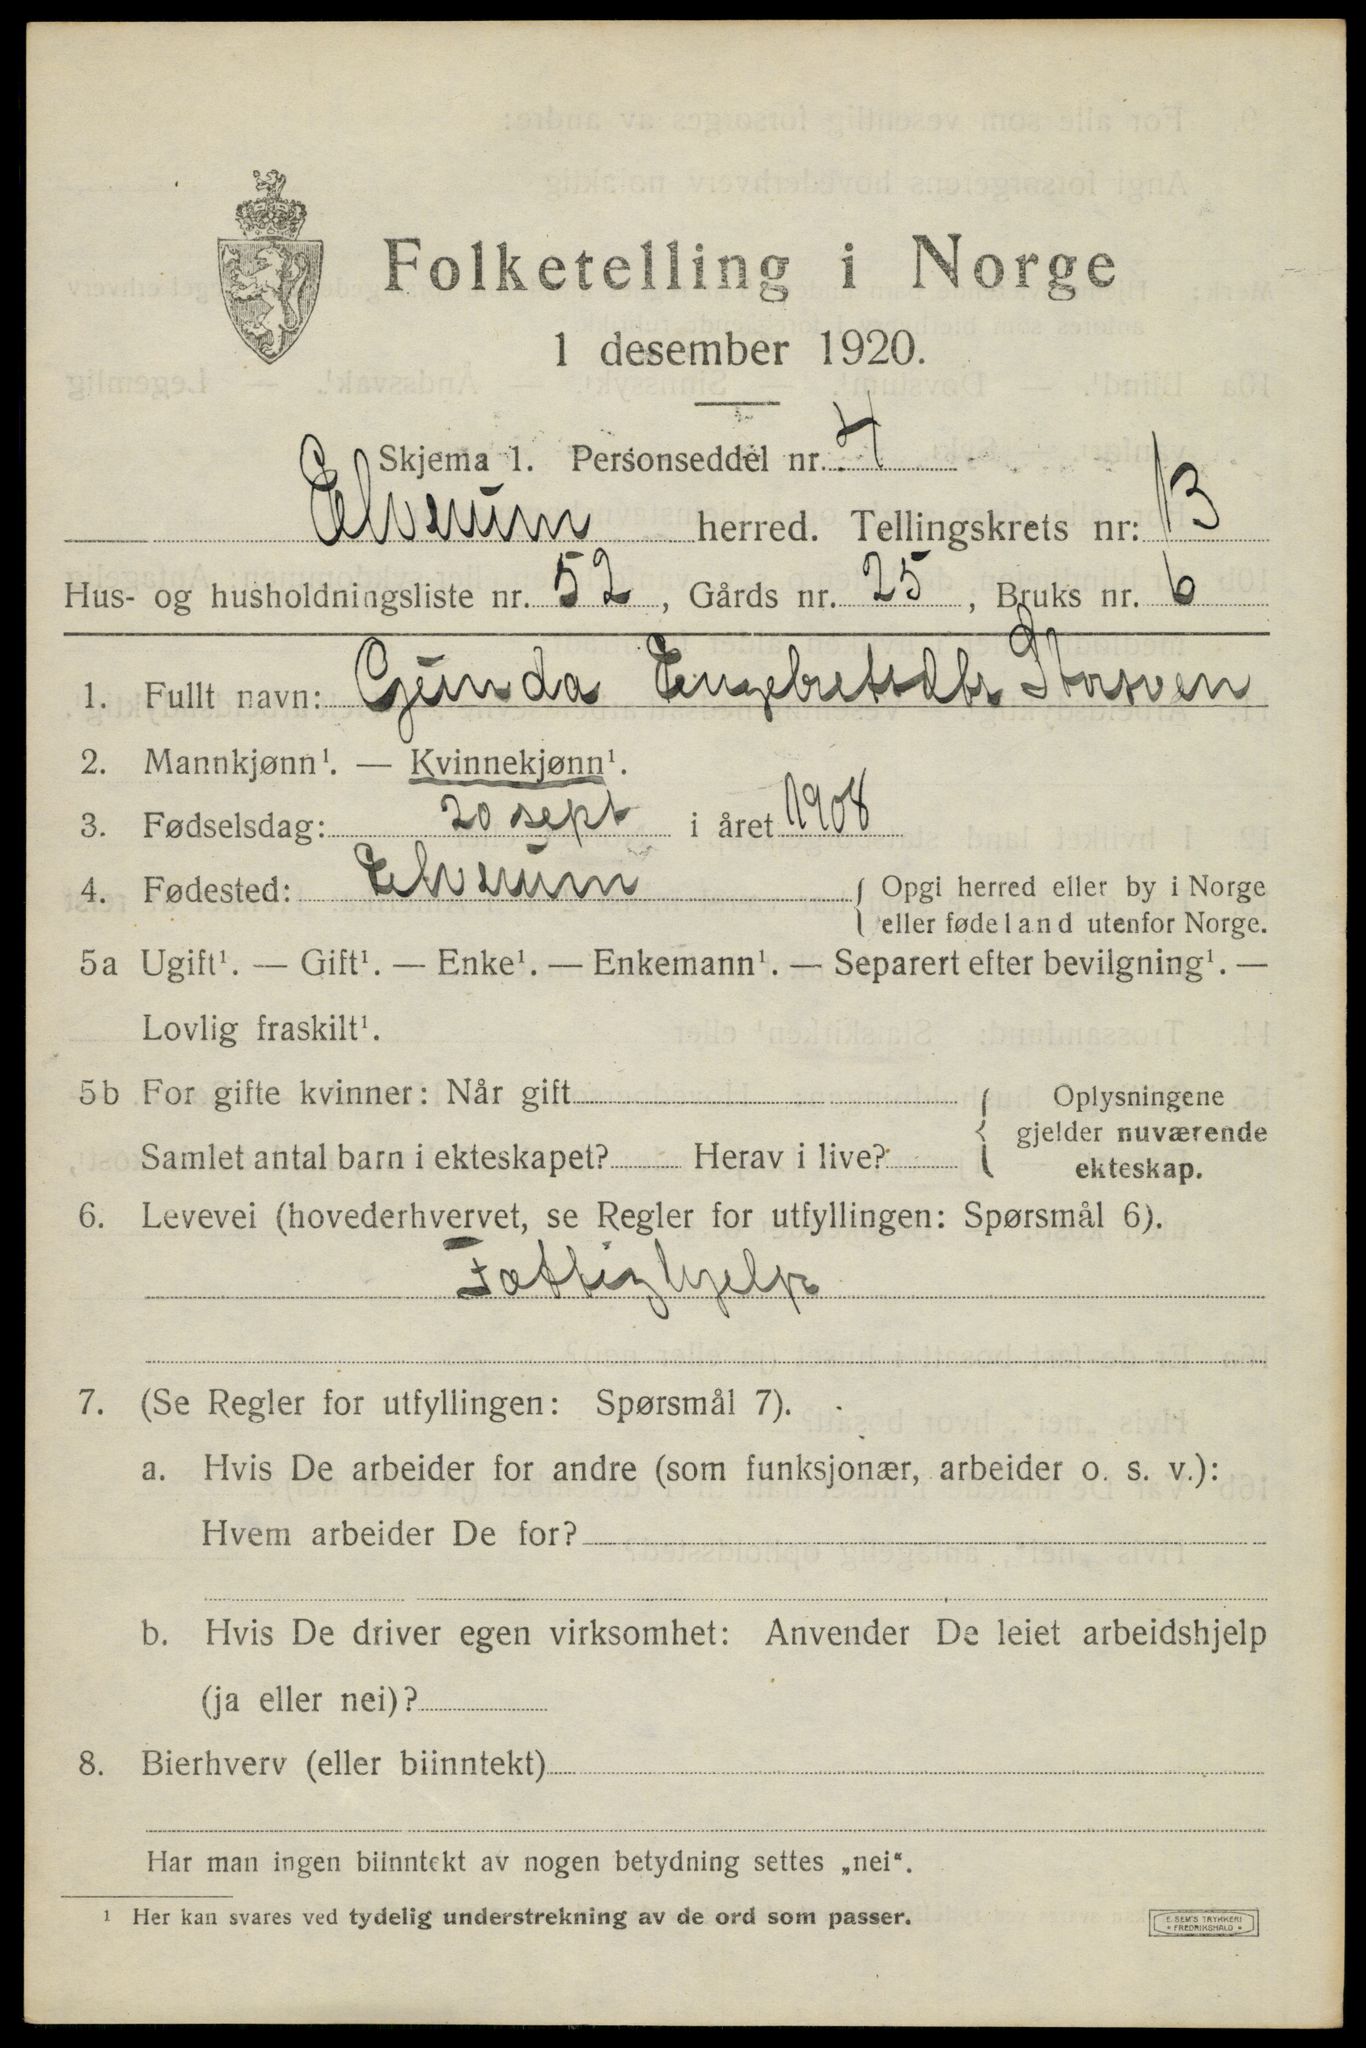 Folketelling i Norge
1 desember 1920.
Skjema 1. Personseddel nr. 4
Elverum herred. Tellingskrets nr: 13
Hus- og husholdningsliste nr. 52, Gårds nr. 25, Bruks nr. 6
1. Fullt navn: Gunda Engebretsdtr Storsven
2. Mannkjønn¹. — Kvinnekjønn¹.
3. Fødselsdag: 20 sept i året 1908
4. Fødested: Elverum { Opgi herred eller by i Norge
eller fødeland utenfor Norge.
5a Ugift¹. — Gift¹. — Enke¹. — Enkemann¹. — Separert efter bevilgning¹. —
Lovlig fraskilt¹.
5b For gifte kvinner: Når gift { Oplysningene
gjelder nuværende
Samlet antal barn i ekteskapet? Herav i live? ekteskap.
6. Levevei (hovederhvervet, se Regler for utfyllingen: Spørsmål 6).
Fattighjelp
7. (Se Regler for utfyllingen: Spørsmål 7).
a. Hvis De arbeider for andre (som funksjonær, arbeider o. s. v.):
Hvem arbeider De for?
b. Hvis De driver egen virksomhet: Anvender De leiet arbeidshjelp
(ja eller nei)?
8. Bierhverv (eller biinntekt)
Har man ingen biinntekt av nogen betydning settes „nei“.
¹ Her kan svares ved tydelig understrekning av de ord som passer.
E. SEM'S TRYKKERI
FREDRIKSHALD